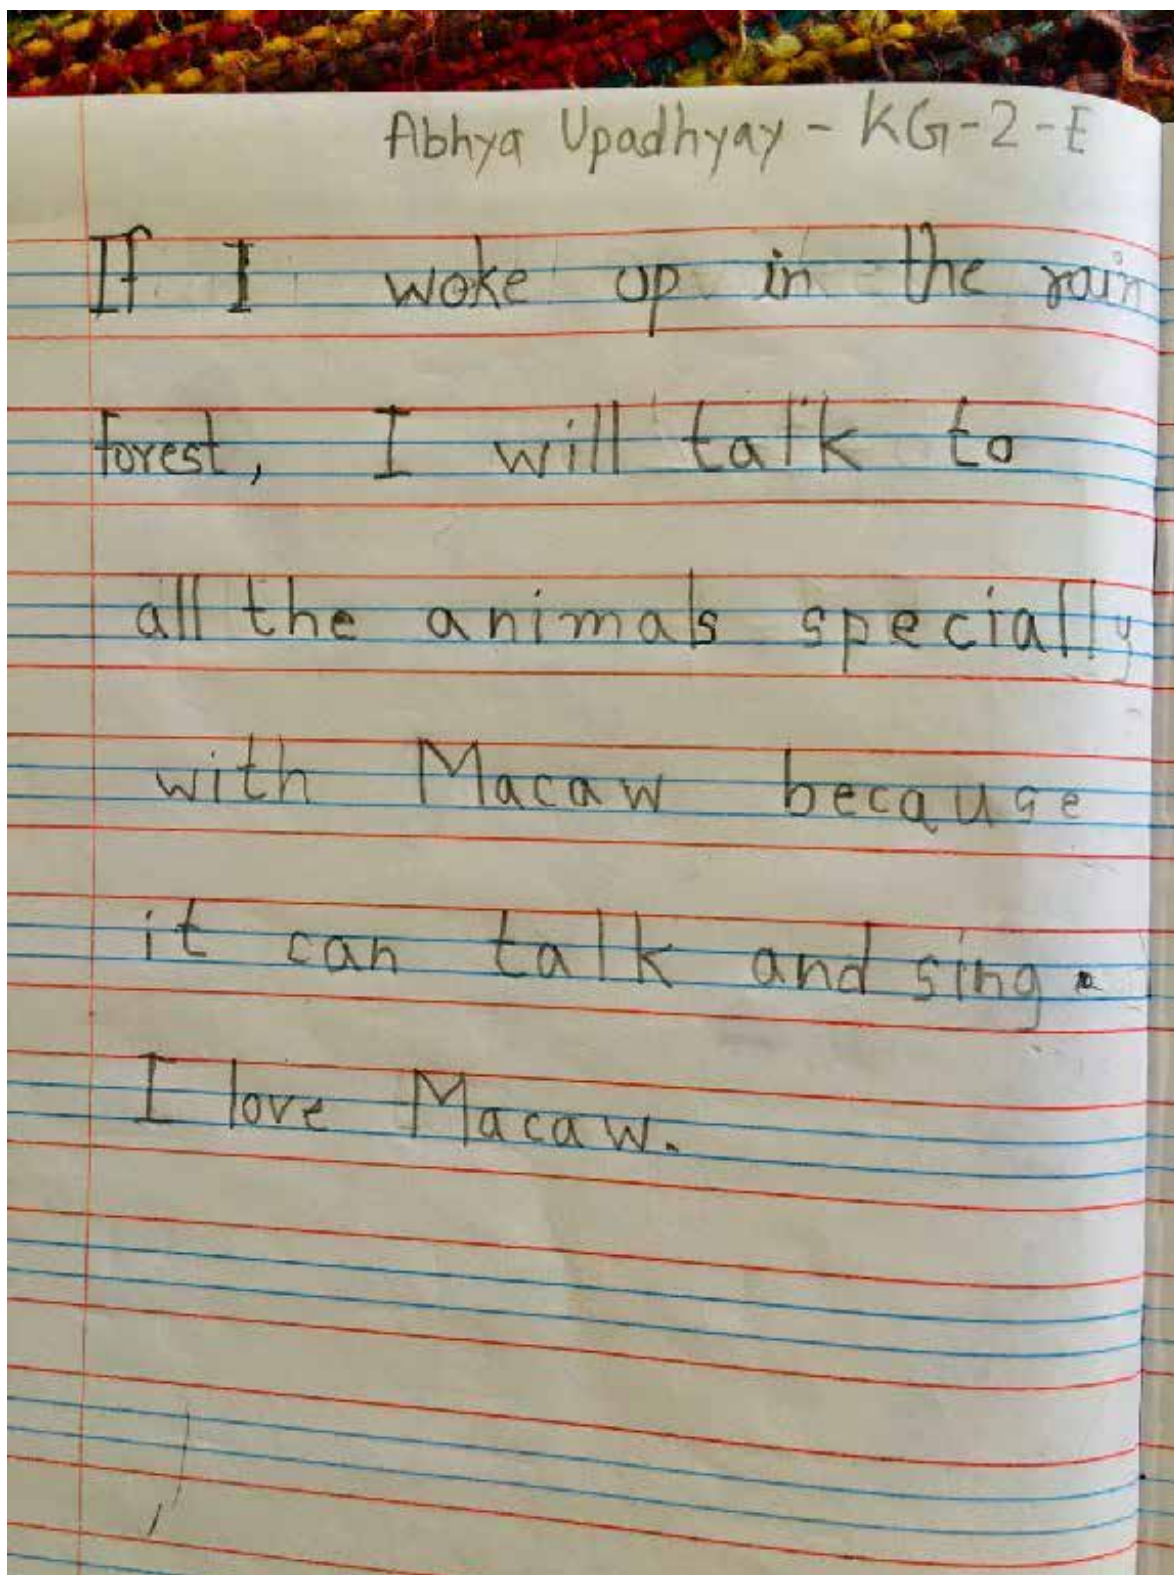 Abhya Upadhyay - KG-2-E
If I woke up in the rain
forest, I will talk to
all the animals specially
with Macaw because
it can talk and sing.
I love Macaw.